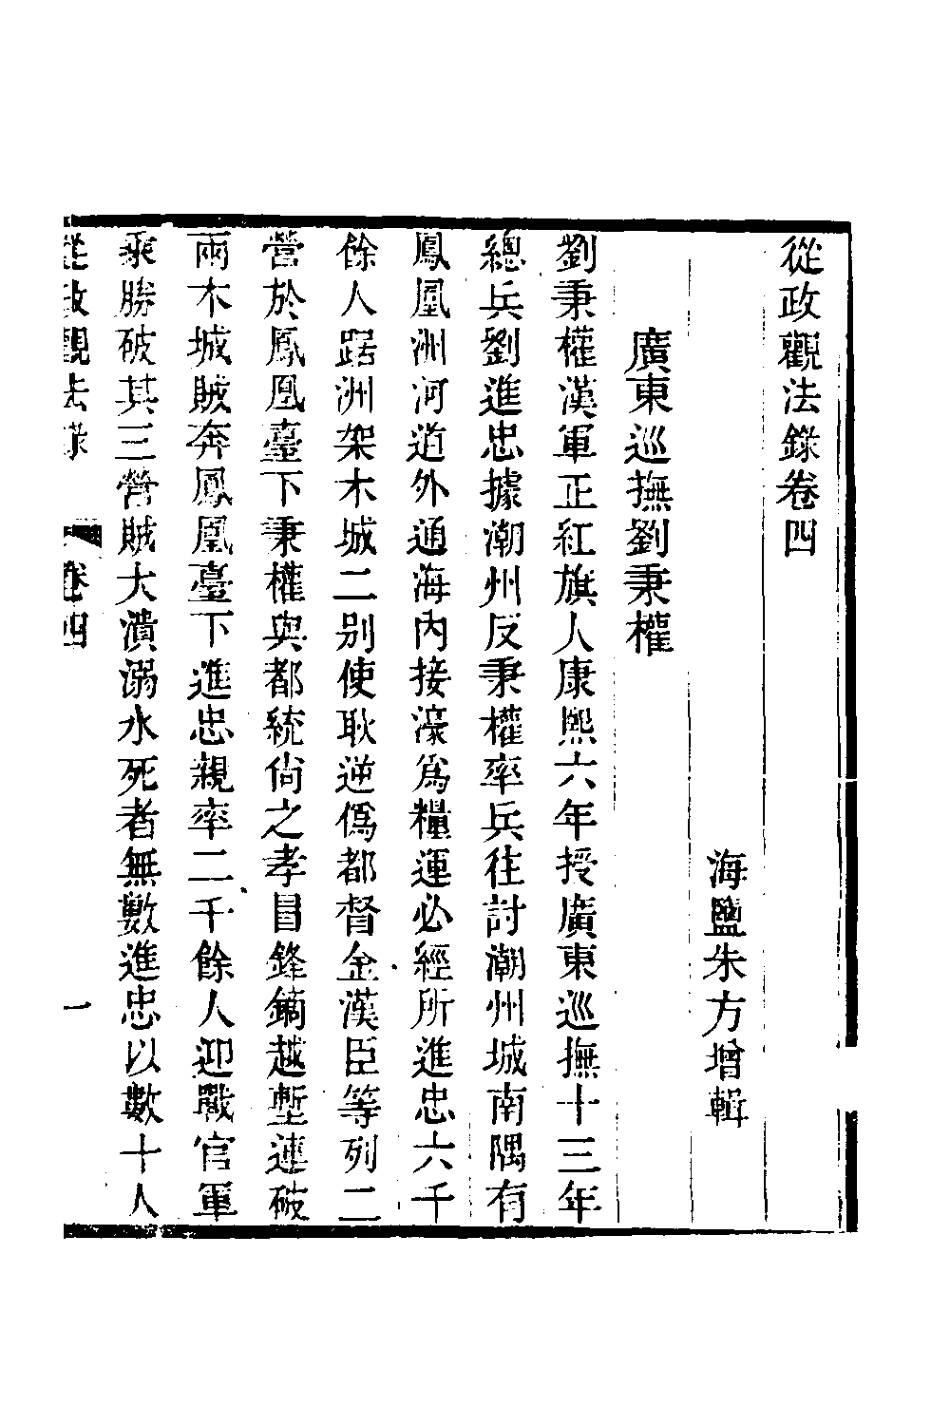 從政觀法錄卷四
海鹽朱方增輯
廣東巡撫劉秉權
劉秉權漢軍正紅旗人康熙六年授廣東巡撫十三年
總兵劉進忠據潮州反秉權率兵往討潮州城南隅有
鳳凰洲河道外通海內接濠為糧運必經所進忠六千
餘人踞洲架木城二別使耿逆偽都督金漢臣等列二
營於鳳凰臺下秉權與都統尚之孝冒鋒鏑越塹連破
兩木城賊奔鳳凰臺下進忠親率二千餘人迎戰官軍
乘勝破其三營賊大潰溺水死者無數進忠以數十人
從政觀法錄 卷四 一